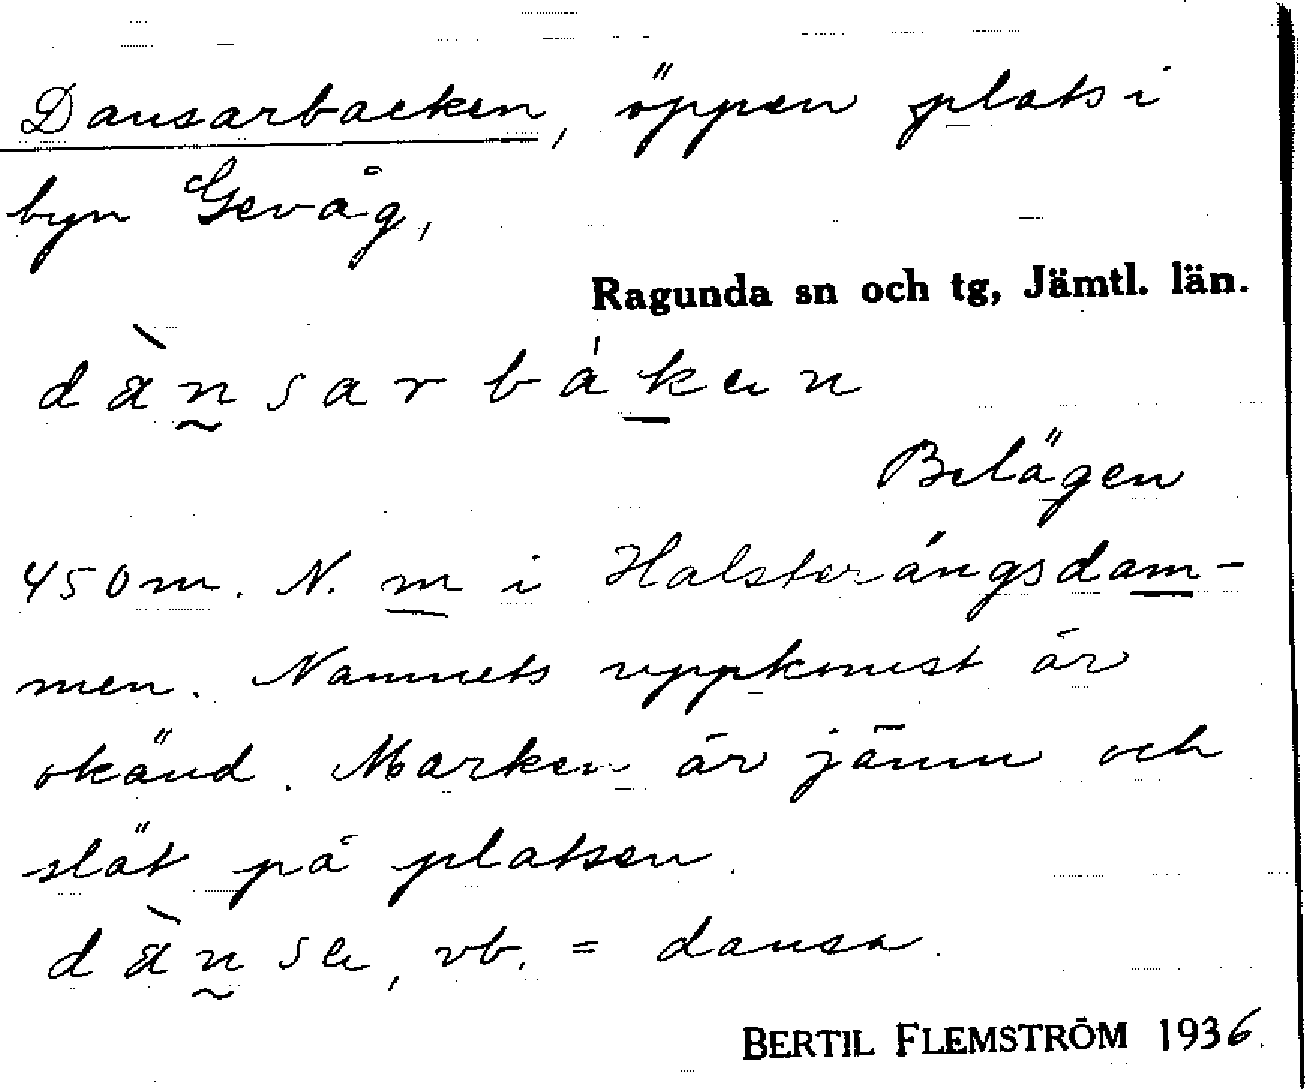 Dansarbacken, öppen plats i
byn Gevåg,
Ragunda sn och tg, Jämtl. län.
dàn̰sarbák̲en
Belägen
450 m. N. m i Halsterängsdam-
men. Namnets uppkomst är
okänd. Marken är jämn och
slät på platsen.
dàn̰sa, vb. = dansa.
BERTIL FLEMSTRÖM 1936.